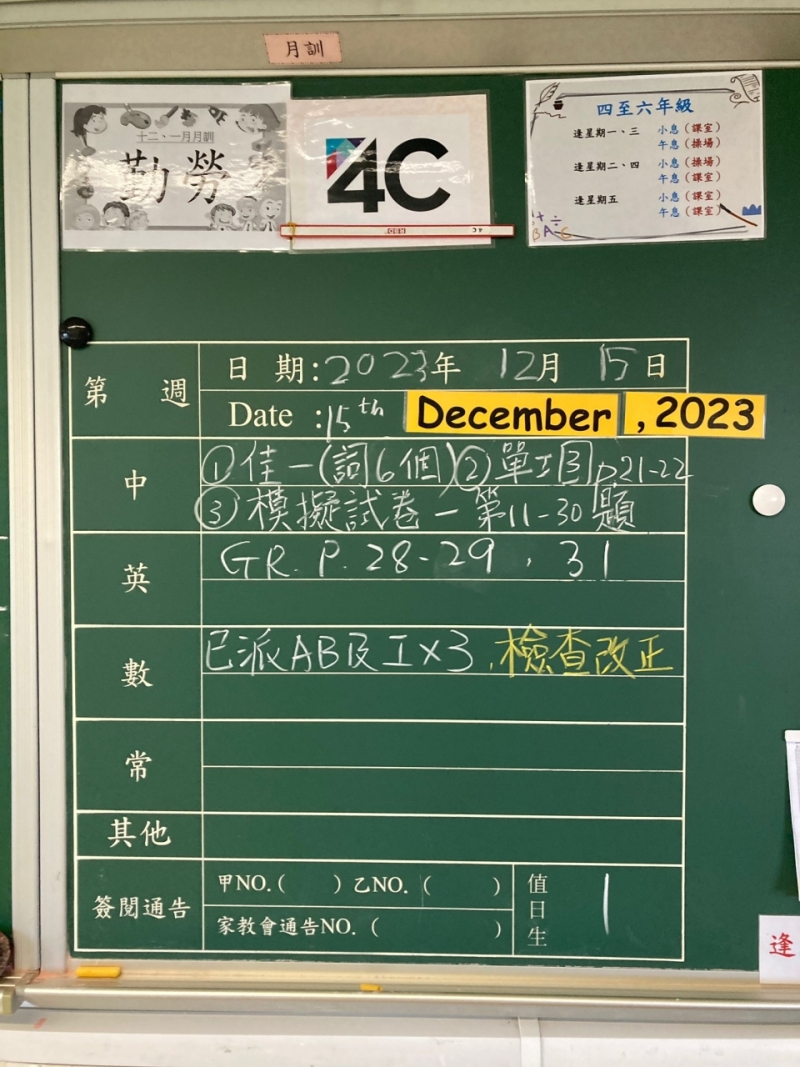 月訓
十二、一月月訓
勤勞
4C
四至六年級
逢星期一、三 小息（課室）
午息（操場）
逢星期二、四 小息（操場）
午息（課室）
逢星期五 小息（課室）
午息（課室）
第 週
日 期:2023年 12月 15日
Date :15th December , 2023
中
①佳一(詞6個)②單工③p21-22
③模擬試卷一第11-30題
英
GR. P. 28-29 , 31
數
已派AB及工×3,檢查改正
常
其他
簽閱通告
甲NO.( ) 乙NO. ( )
家教會通告NO. ( )
值日生
1
逢